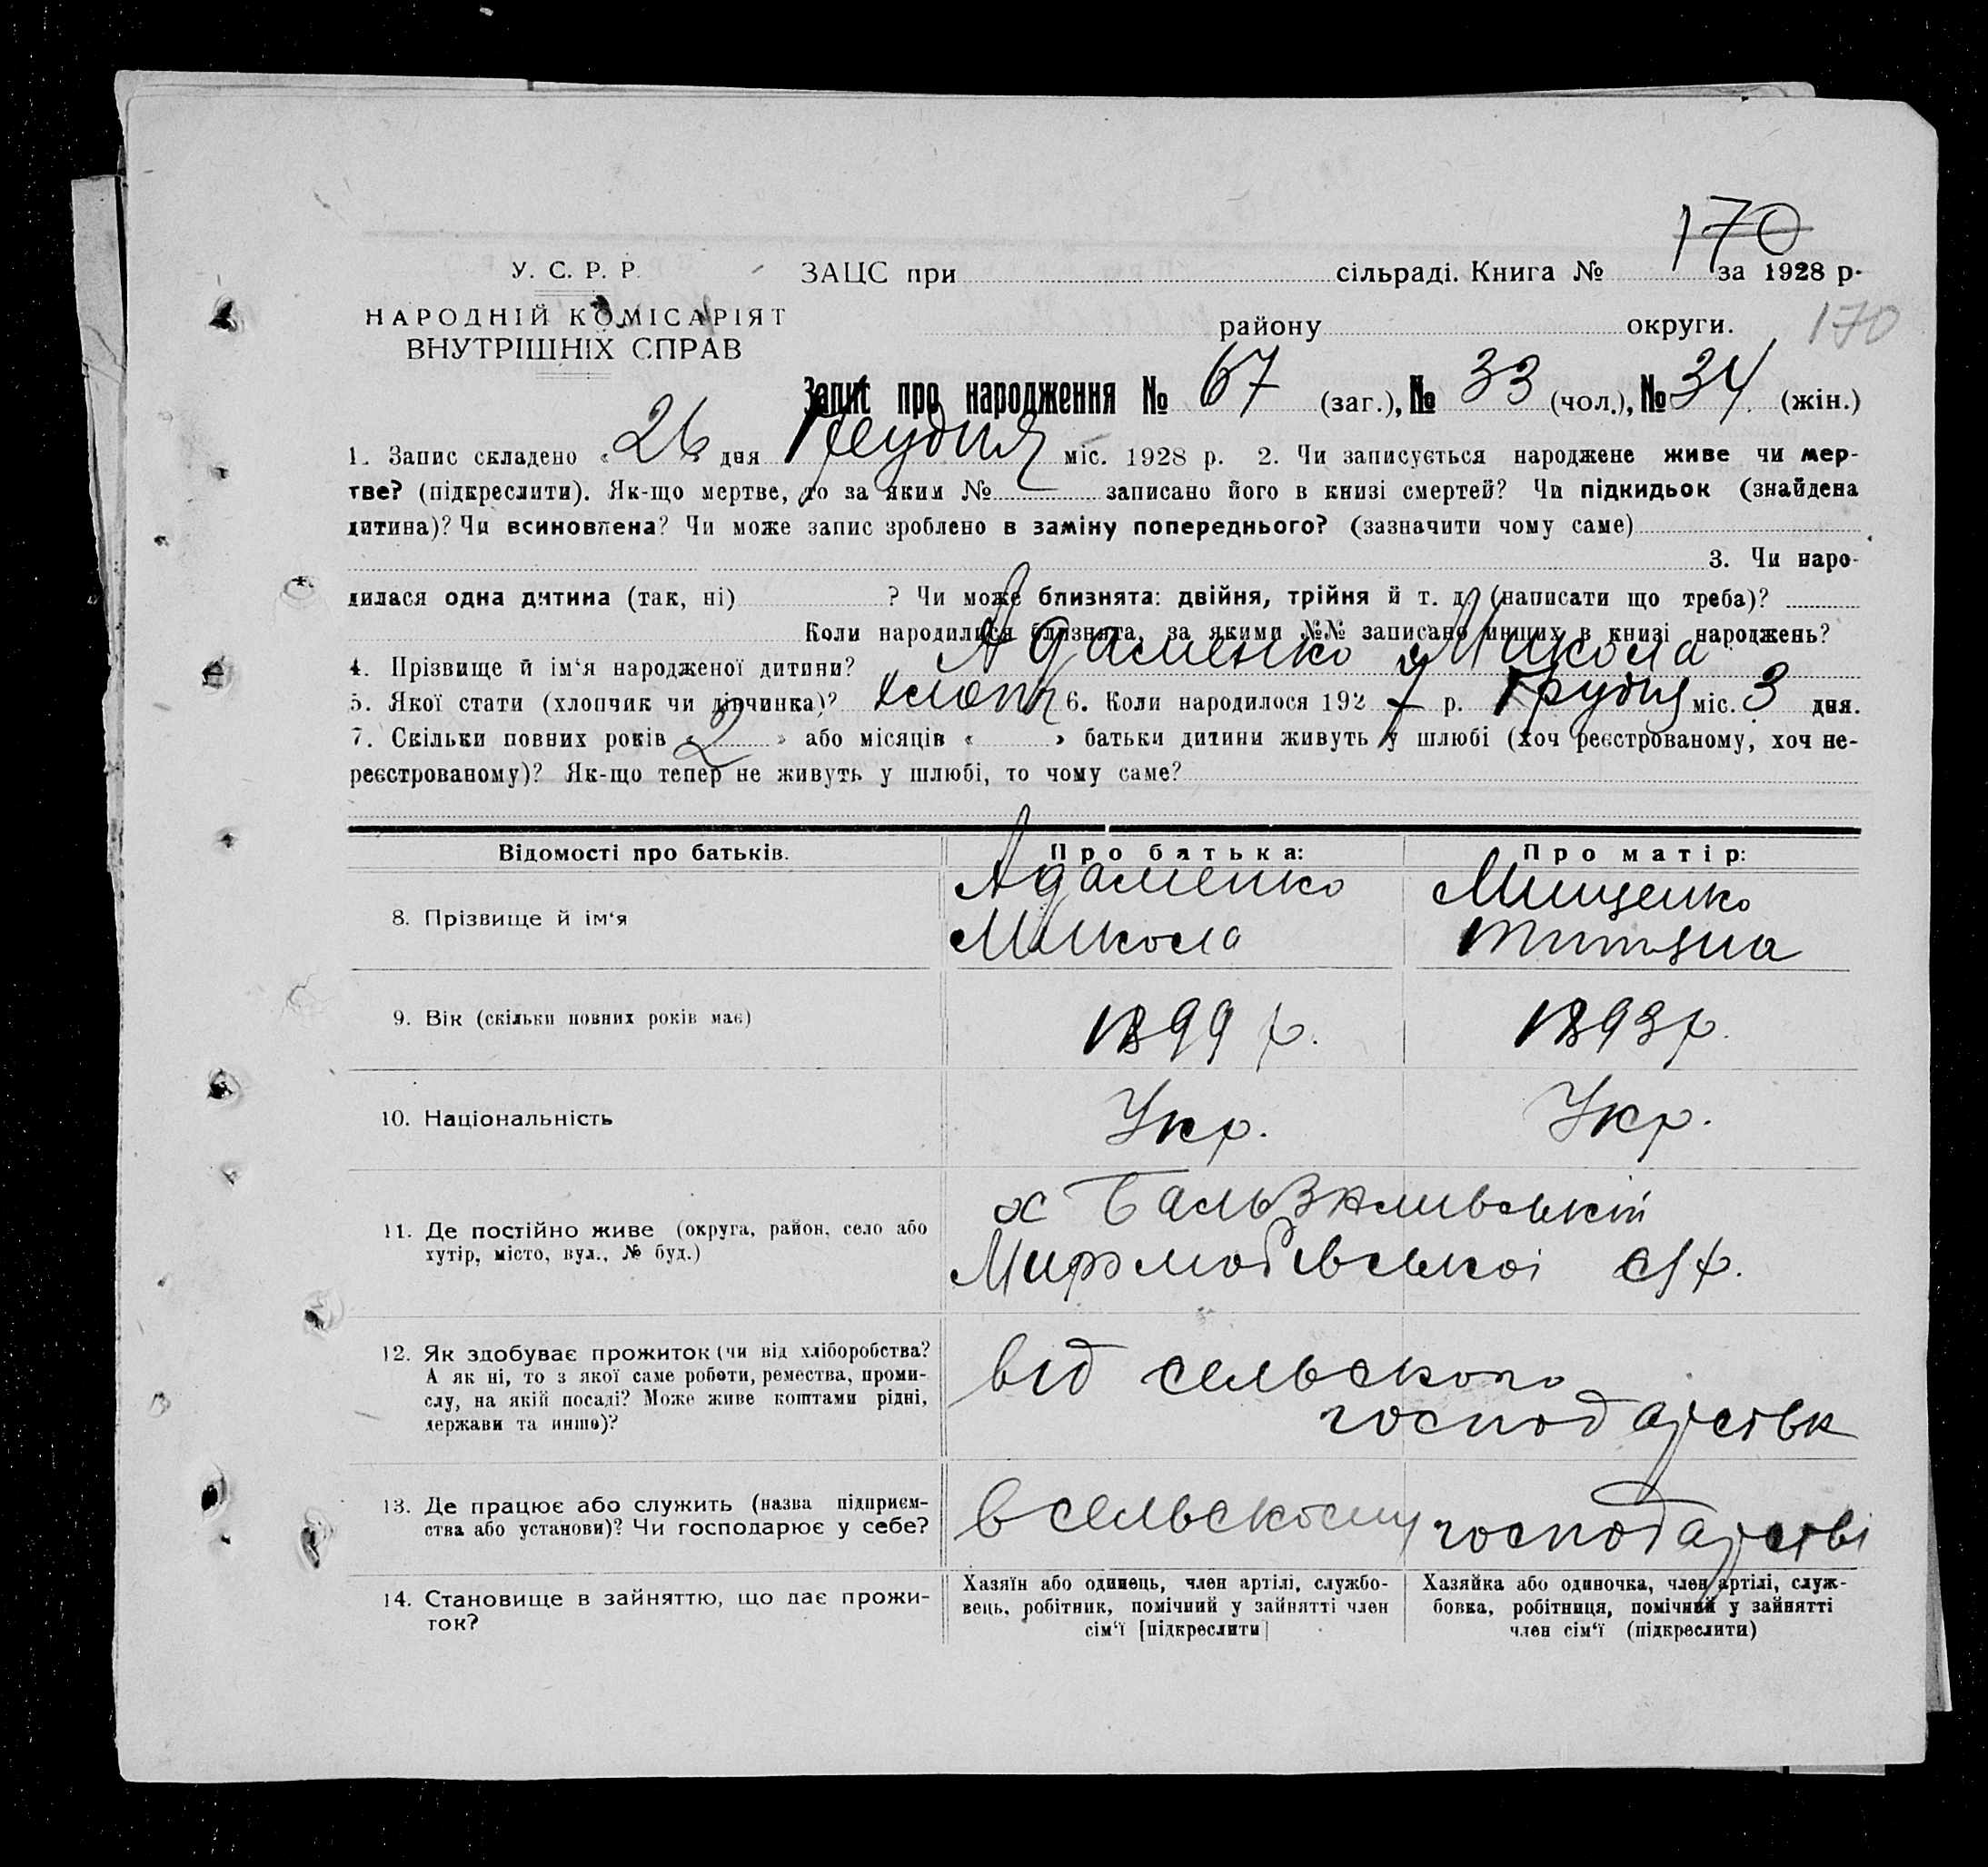 170
У. С. Р. Р. ЗАЦС при сільраді. Книга № за 1928 р.
НАРОДНІЙ КОМІСАРІЯТ
району округи. 170
ВНУТРІШНІХ СПРАВ
Запис про народження № 67 (заг.), № 33 (чол.), № 34 (жін.)
1. Запис складено « 26 » дня Грудня міс. 1928 р. 2. Чи записується народжене живе чи мер-
тве? (підкреслити). Як-що мертве, то за яким № записано його в книзі смертей? Чи підкидьок (знайдена
дитина)? Чи всиновлена? Чи може запис зроблено в заміну попереднього? (зазначити чому саме)
3. Чи наро-
дилася одна дитина (так, ні) ? Чи може близнята: двійня, трійня й т. д. (написати що треба)?
Коли народилися близнята, за якими №№ записано инших в книзі народжень?
4. Прізвище й ім'я народженої дитини? Адаменко Микола
5. Якої стати (хлопчик чи дівчинка)? хлопч 6. Коли народилося 192 7 р. Грудня міс. 3 дня.
7. Скільки повних років « 2 » або місяців « » батьки дитини живуть у шлюбі (хоч реєстрованому, хоч не-
реєстрованому)? Як-що тепер не живуть у шлюбі, то чому саме?
Відомості про батьків. Про батька: Про матір:
8. Прізвище й ім'я
Адаменко Мищенко
Микола
9. Вік (скільки повних років має) 1899 р. 1893 р.
10. Національність Укр. Укр.
11. Де постійно живе (округа, район, село або
хутір, місто, вул., № буд.)
х
с/р.
12. Як здобуває прожиток (чи від хліборобства?
А як ні, то з якої саме роботи, ремества, проми-
слу, на якій посаді? Може живе коштами рідні,
держави та инше)?
від сельского
господарства
13. Де працює або служить (назва підприєм-
ства або установи)? Чи господарює у себе?
в сельскому господарстві
14. Становище в зайняттю, що дає прожи-
ток?
Хазяїн або одинець, член артілі, службо-
вець, робітник, помічний у зайнятті член
сім'ї [підкреслити]
Хазяйка або одиночка, член артілі, служ-
бовка, робітниця, помічний у зайнятті
член сім'ї (підкреслити)